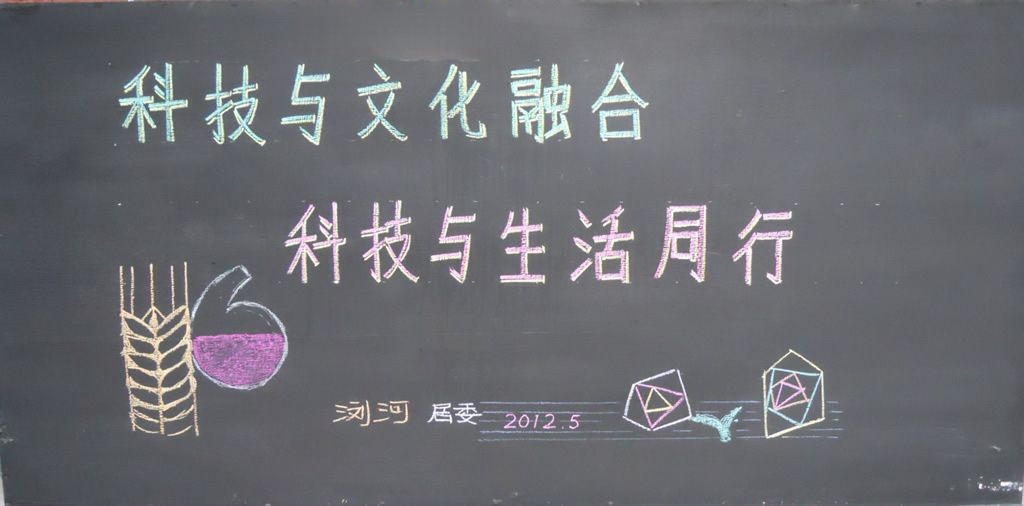 科技与文化融合
科技与生活同行
浏河 居委 2012.5